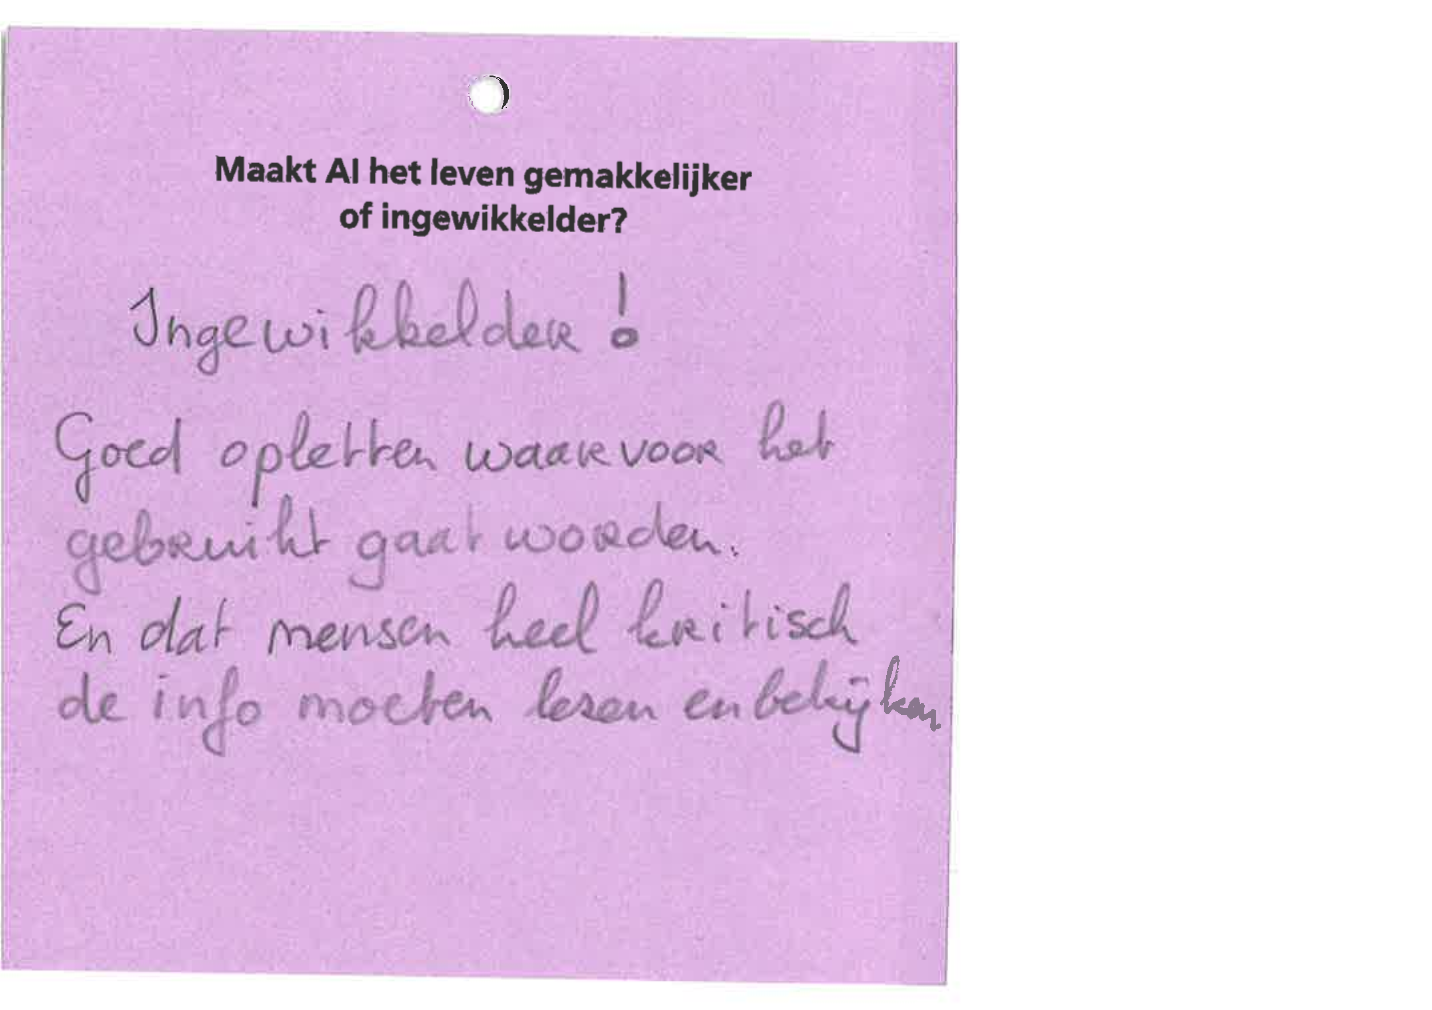 Maakt AI het leven gemakkelijker
of ingewikkelder?
Ingewikkelder !
Goed opletten waarvoor het
gebruikt gaat worden.
En dat mensen heel kritisch
de info moeten lezen en bekijken